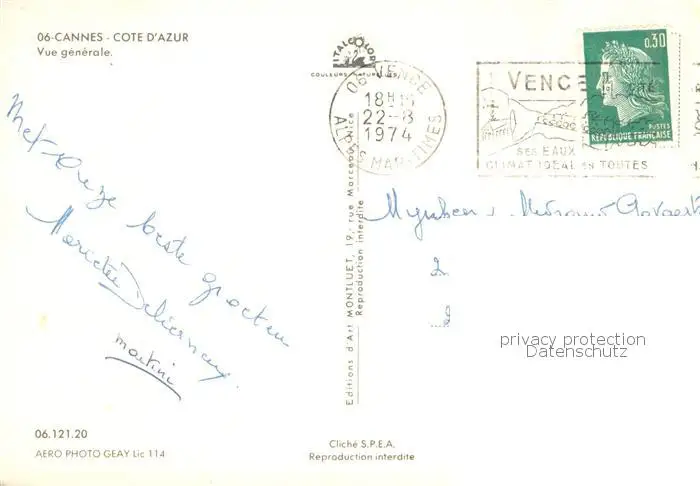 06-CANNES - COTE D'AZUR
Vue générale.
ITALCOLOR
COULEURS NATURELLES
06 VENCE
18H15
22-8
1974
ALPES MARITIMES
VENCE
SES EAUX
CLIMAT IDEAL EN TOUTES
0,30
POSTES
REPUBLIQUE FRANÇAISE
Met onze beste groeten
martini
Editions d'Art MONTLUET, 19, rue Marceau, Nice
Reproduction interdite
privacy protection
Datenschutz
06.121.20
AERO PHOTO GEAY Lic 114
Cliché S.P.E.A.
Reproduction interdite